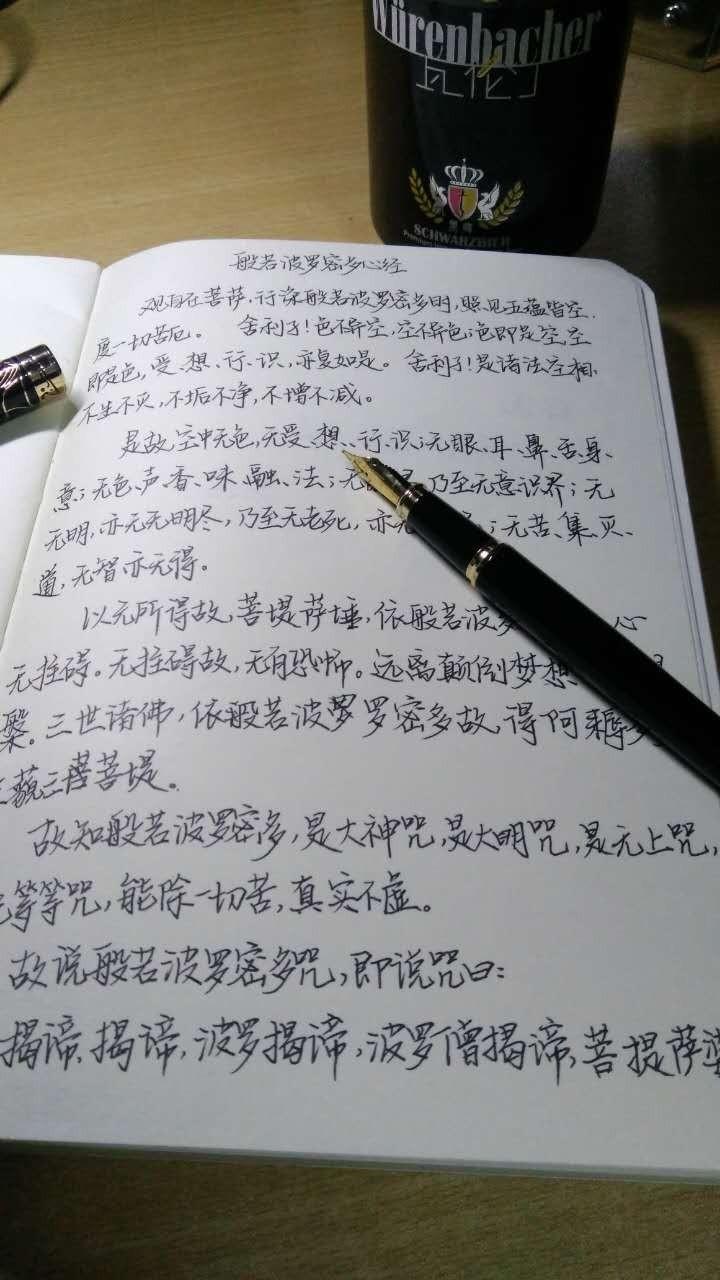 Würenbacher
瓦伦丁
SCHWARZBIER
般若波罗密多心经
观自在菩萨,行深般若波罗密多时,照见五蕴皆空,
度一切苦厄。 舍利子!色不异空,空不异色;色即是空,空
即是色,受、想、行、识,亦复如是。 舍利子!是诸法空相,
不生不灭,不垢不净,不增不减。
是故空中无色,无受、想、行、识;无眼、耳、鼻、舌、身、
意;无色、声、香、味、触、法;无 乃至无意识界;无
无明,亦无无明尽,乃至无老死,亦无 ;无苦、集、灭、
道,无智亦无得。
以无所得故,菩提萨埵,依般若波 心
无挂碍。无挂碍故,无有恐怖。远离颠倒梦想
槃。三世诸佛,依般若波罗密多故,得阿耨多
三藐三菩菩提。
故知般若波罗密多,是大神咒,是大明咒,是无上咒,
等等咒,能除一切苦,真实不虚。
故说般若波罗密多咒,即说咒曰:
揭谛、揭谛,波罗揭谛,波罗僧揭谛,菩提萨婆